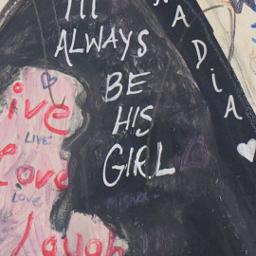 I'll
ALWAYS
BE
HIS
GIRL
NADIA
Live
LIVE
Love
LOVE
Laugh